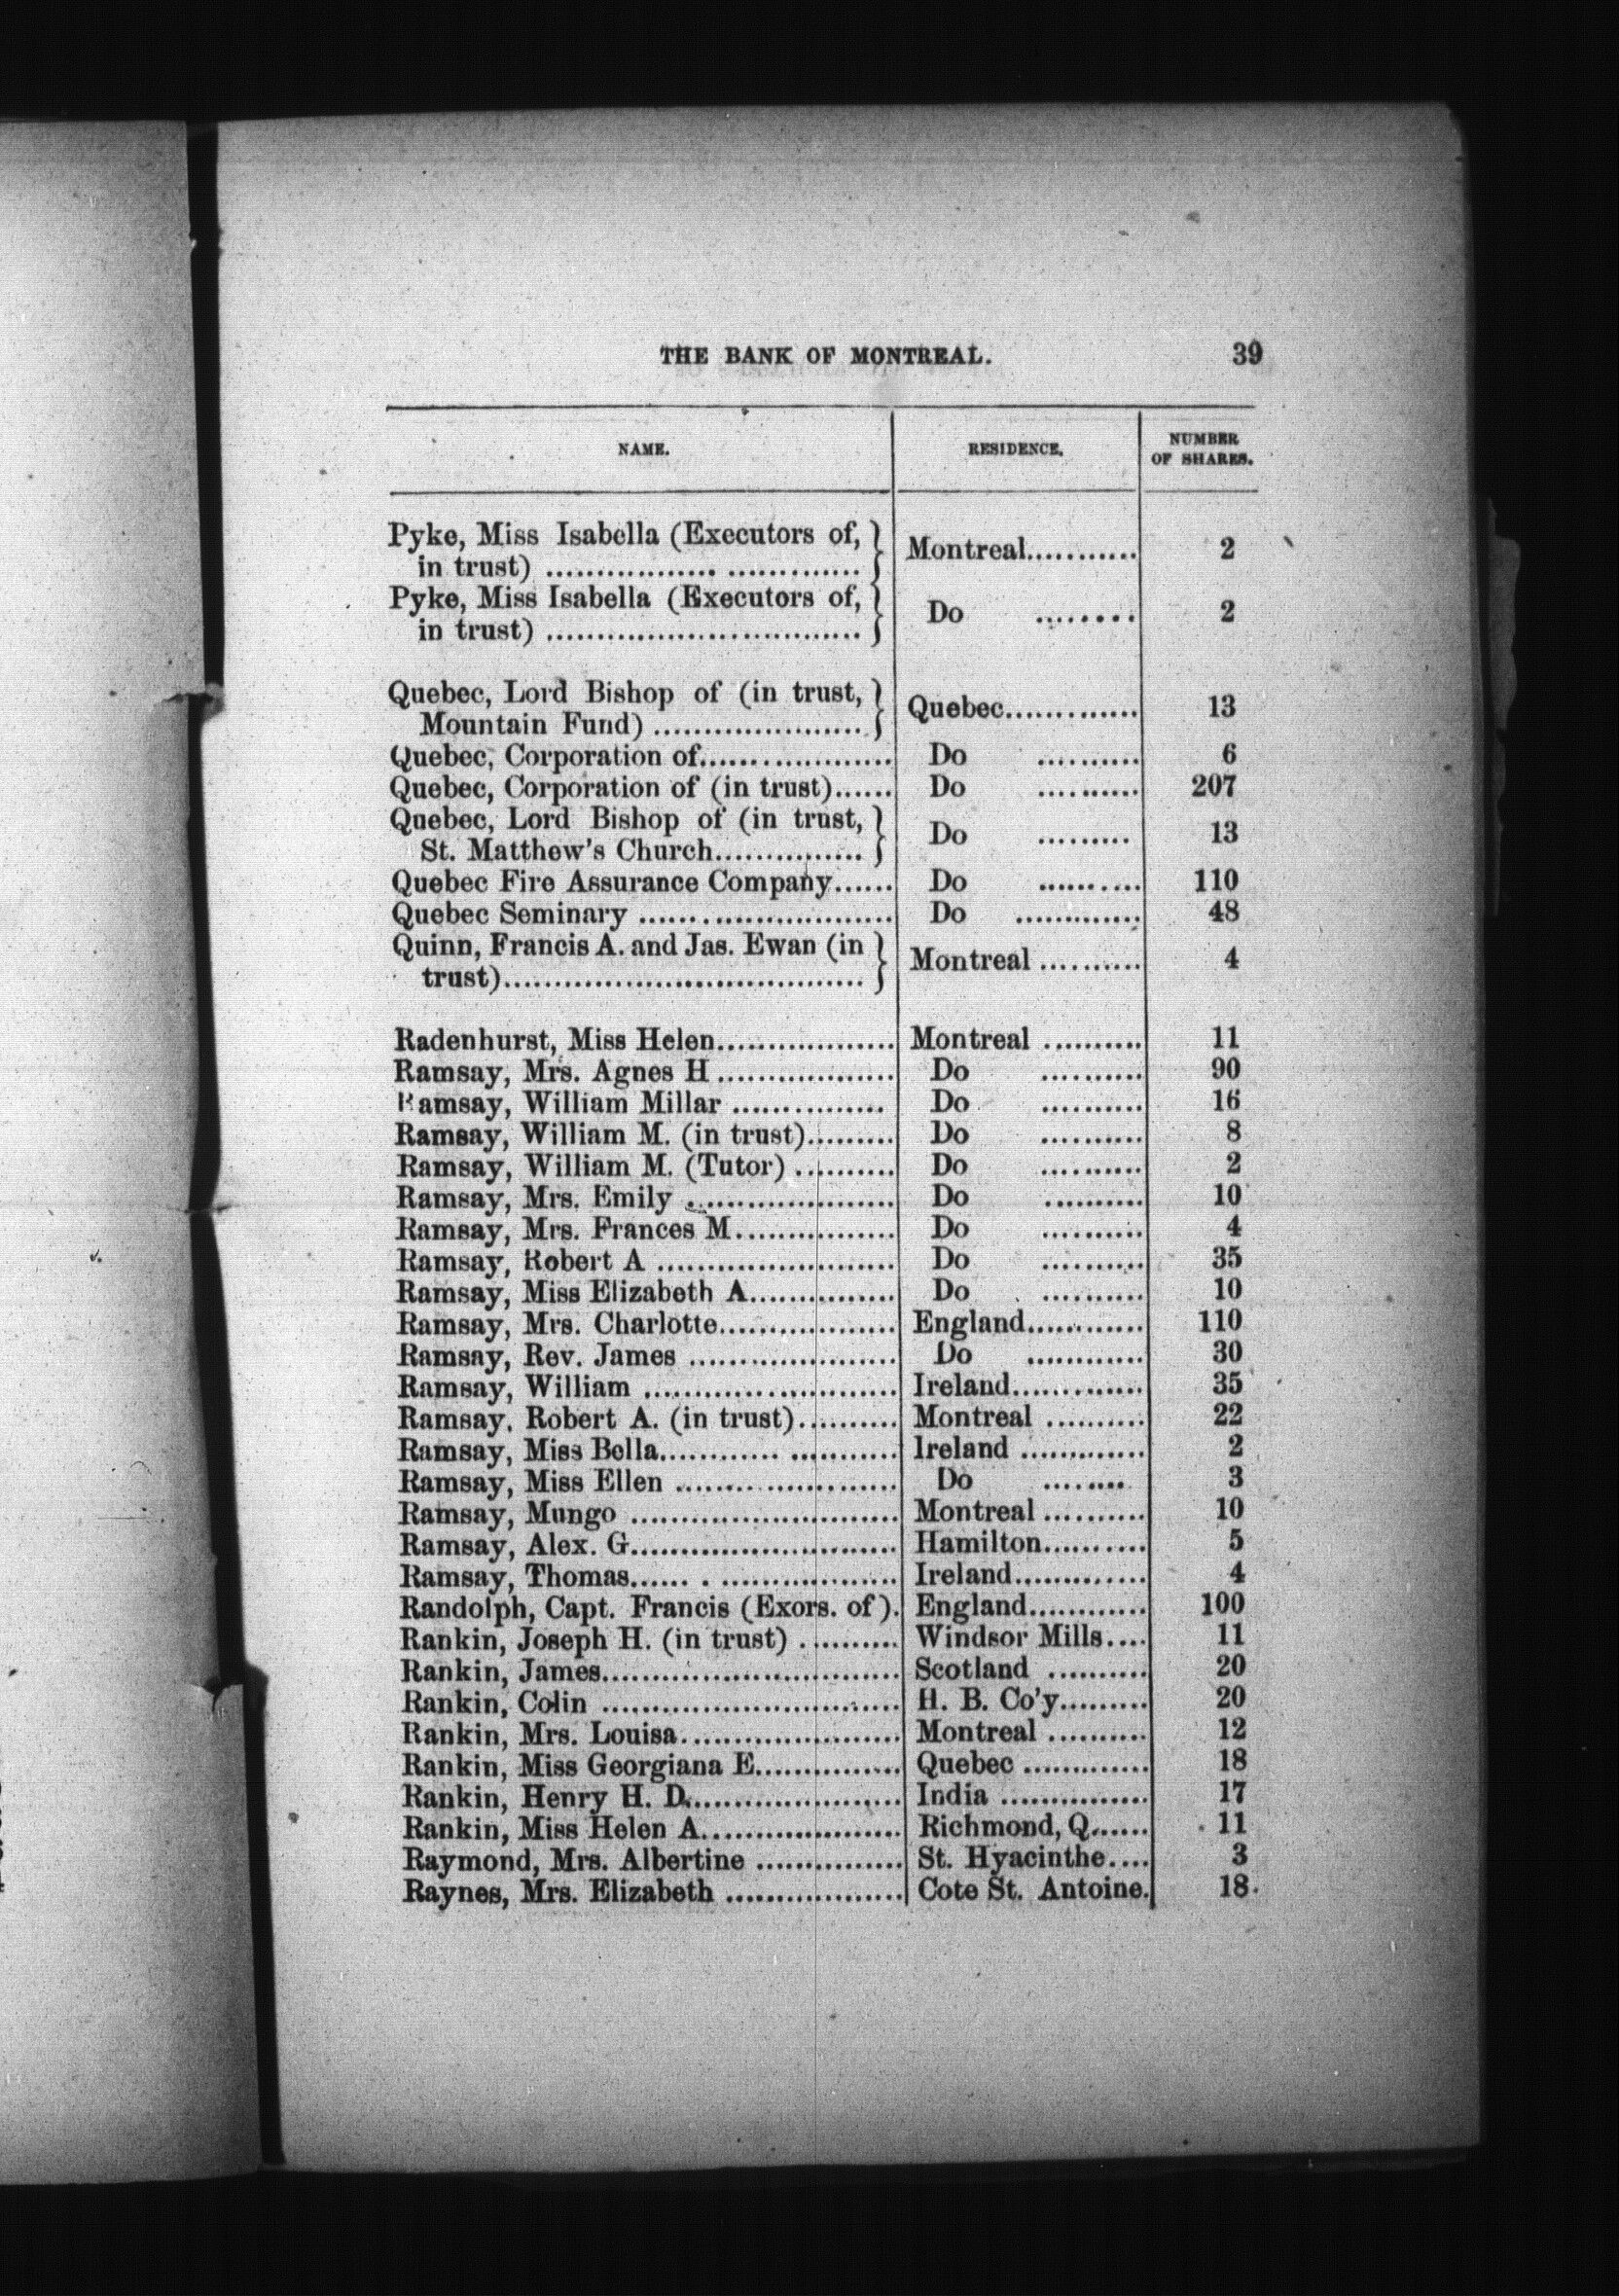 THE BANK OF MONTREAL. 39
NAME. RESIDENCE. NUMBER OF SHARES.
Pyke, Miss Isabella (Executors of,
in trust) .............................. } Montreal........... 2
Pyke, Miss Isabella (Executors of,
in trust) .............................. } Do ........ 2
Quebec, Lord Bishop of (in trust,
Mountain Fund) ..................... } Quebec............. 13
Quebec, Corporation of................... Do .......... 6
Quebec, Corporation of (in trust)...... Do .......... 207
Quebec, Lord Bishop of (in trust,
St. Matthew's Church............... } Do ......... 13
Quebec Fire Assurance Company...... Do .......... 110
Quebec Seminary ......................... Do ............. 48
Quinn, Francis A. and Jas. Ewan (in
trust).................................... } Montreal .......... 4
Radenhurst, Miss Helen.................. Montreal .......... 11
Ramsay, Mrs. Agnes H .................. Do .......... 90
Ramsay, William Millar ............... Do .......... 16
Ramsay, William M. (in trust)......... Do .......... 8
Ramsay, William M. (Tutor) .......... Do .......... 2
Ramsay, Mrs. Emily ..................... Do .......... 10
Ramsay, Mrs. Frances M................ Do .......... 4
Ramsay, Robert A ........................ Do .......... 35
Ramsay, Miss Elizabeth A............... Do .......... 10
Ramsay, Mrs. Charlotte.................. England............ 110
Ramsay, Rev. James ..................... Do ............ 30
Ramsay, William ......................... Ireland............. 35
Ramsay, Robert A. (in trust).......... Montreal .......... 22
Ramsay, Miss Bella....................... Ireland ............. 2
Ramsay, Miss Ellen ...................... Do ........ 3
Ramsay, Mungo ........................... Montreal .......... 10
Ramsay, Alex. G........................... Hamilton.......... 5
Ramsay, Thomas.......................... Ireland............. 4
Randolph, Capt. Francis (Exors. of). England............ 100
Rankin, Joseph H. (in trust) .......... Windsor Mills.... 11
Rankin, James.............................. Scotland .......... 20
Rankin, Colin .............................. H. B. Co'y......... 20
Rankin, Mrs. Louisa...................... Montreal .......... 12
Rankin, Miss Georgiana E............... Quebec ............. 18
Rankin, Henry H. D...................... India ............... 17
Rankin, Miss Helen A.................... Richmond, Q...... 11
Raymond, Mrs. Albertine ............... St. Hyacinthe.... 3
Raynes, Mrs. Elizabeth .................. Cote St. Antoine. 18